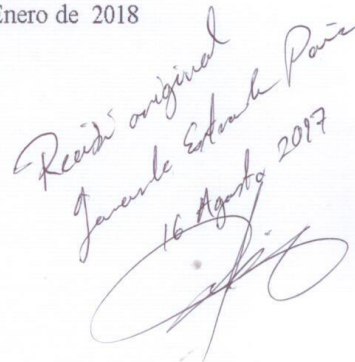 Enero de 2018
Recibí original
Estrada
16 Agosto 2017